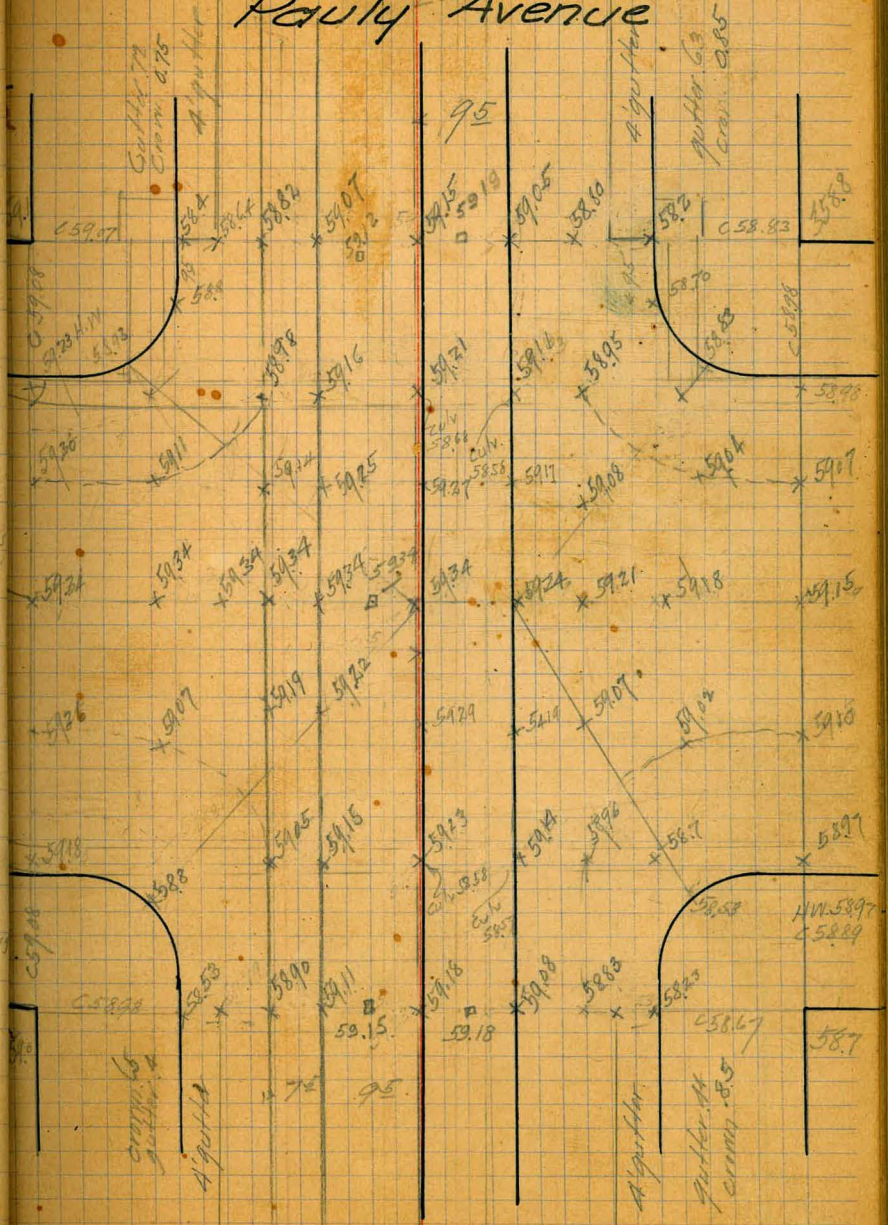 Pauly Avenue
Gutter .72
Crown 0.75
4' gutter
95
4' gutter
gutter .63
crown 0.85
C 59.07
58.4
58.64
58.82
59.07
59.12
59.15
59.19
59.05
58.80
58.2
C 58.83
58.8
C 59.08
95
58.8
58.70
C 58.98
59.23 H.W
58.98
58.98
59.16
59.21
58.95
58.83
58.98
culv
culv.
58.58
59.11
59.25
59.27
59.17
59.08
59.04
59.07
59.34
59.34
59.34
59.34
59.34
59.34
59.34
59.24
59.21
59.18
59.15
59.26
59.07
59.19
59.22
59.29
54.19
59.07
59.02
59.10
59.18
58.8
59.05
59.15
59.23
59.14
58.96
58.7
58.97
culv 58.58
culv
58.53
H.W. 58.97
C 58.89
C 59.08
58.53
58.90
59.11
59.15
59.18
59.18
59.08
58.83
58.23
C 58.67
58.7
75
95
crown .65
gutter .4
4' gutter
4' gutter
gutter .44
crown .85